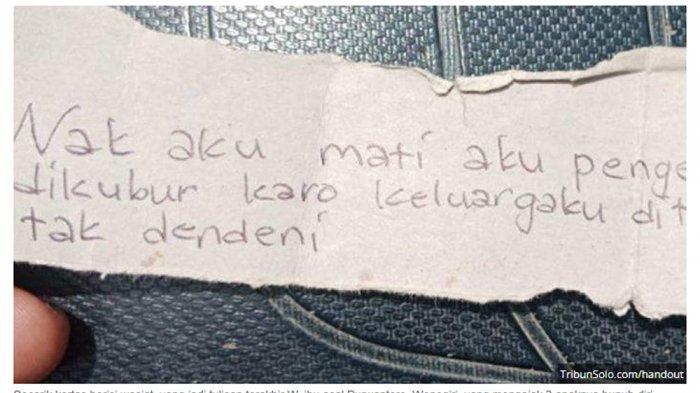 Nak aku mati aku penge
dikubur karo keluargaku dit
tak dendeni
TribunSolo.com/handout